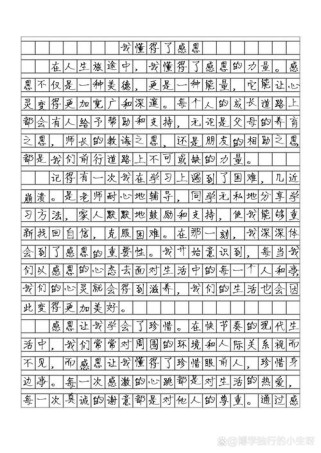 我懂得了感恩
在人生旅途中，我懂得了感恩的力量。感
恩不仅是一种美德，更是一种能量，它能让心
灵变得更加宽广和深邃。每个人的成长道路上
都会有人给予帮助和支持，无论是父母的养育
之恩，师长的教诲之恩，还是朋友的相助之恩
都是我们前行道路上不可或缺的力量。
记得有一次我在学习上遇到了困难，几近
崩溃。是老师耐心地辅导，同学无私地分享学
习方法，家人默默地鼓励和支持，使我能够重
新找回自信，克服困难。在那一刻，我深深体
会到了感恩的重要性。我开始意识到，每当我
们以感恩的心态去面对生活中的每一个人和事
我们的心灵就会得到滋养，我们的生活也会因
此变得更加美好。
感恩让我学会了珍惜。在快节奏的现代生
活中，我们常常对周围的环境和人际关系视而
不见，而感恩让我懂得了珍惜眼前人，珍惜身
边事。每一次感激的心跳都是对生活的热爱，
每一次真诚的谢意都是对他人的尊重。通过感
@博学独行的小安哥